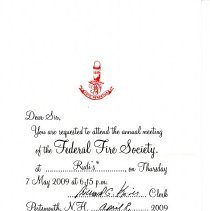 Dear Sir,
You are requested to attend the annual meeting
of the Federal Fire Society.
at Rudi's* on Thursday
7 May 2009 at 6:15 p.m.
Clerk
Portsmouth, N.H. April 2009